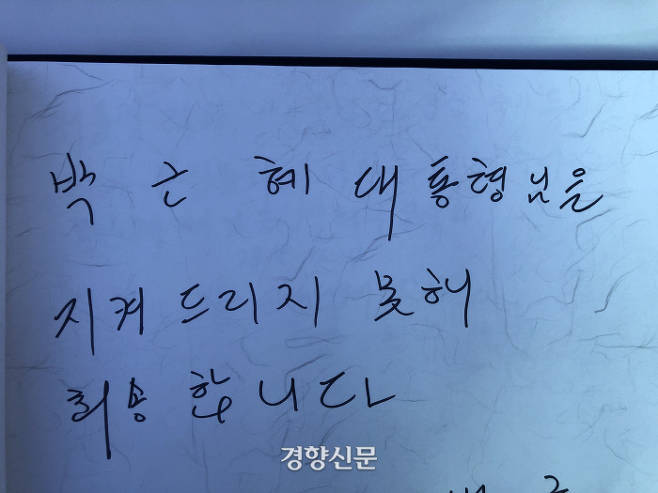 박 근 혜 대통령님을
지켜 드리지 못해
죄송 합니다
경향신문